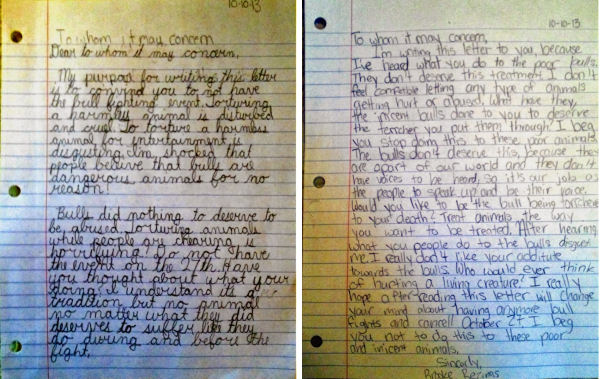 10-10-13
To whom it may concern
Dear to whom it may concern,
My purpos for writing this letter
is to convind you to not have
the bull fighting event. Torturing
a harmless animal is disturbed
and cruel. To torture a harmless
animal for intertainment is
disgusting. Im shocked that
people believe that bulls are
dangerous animals for no
reason!
Bulls did nothing to deserve to
be abused. Torturing animals
while people are chearing is
horrifying! Do not have
the event on the 27th. Have
you thought about what your
doing? I understand its a
tradition but no animal
no matter what they did
deserves to suffer like they
do during and before the
fight.
10-10-13
To whom it may concern,
I'm writing this letter to you, because
I've heard what you do to the poor bulls.
They don't deserve this treatment. I don't
feel comfetible letting any type of animals
getting hurt or abused. What have they,
the inicent bulls done to you to deserve
the torcher you put them through. I beg
you stop doing this to these poor animals.
The bulls don't deserve this, because they
are apart of our world and they don't
have voices to be heard. So it's our job as
the people to speak up and be their voice.
Would you like to be the bull being torchered
to your death? Treat animals the way
you want to be treated. After hearing
what you people do to the bulls disgust
me. I really don't like your additute
towards the bulls. Who would ever think
of hurting a living creature. I really
hope after reading this letter will change
your mind about having anymore bull
fights and cancell October 27. I beg
you not to do this to these poor
and inicent animals.
Sincerly,